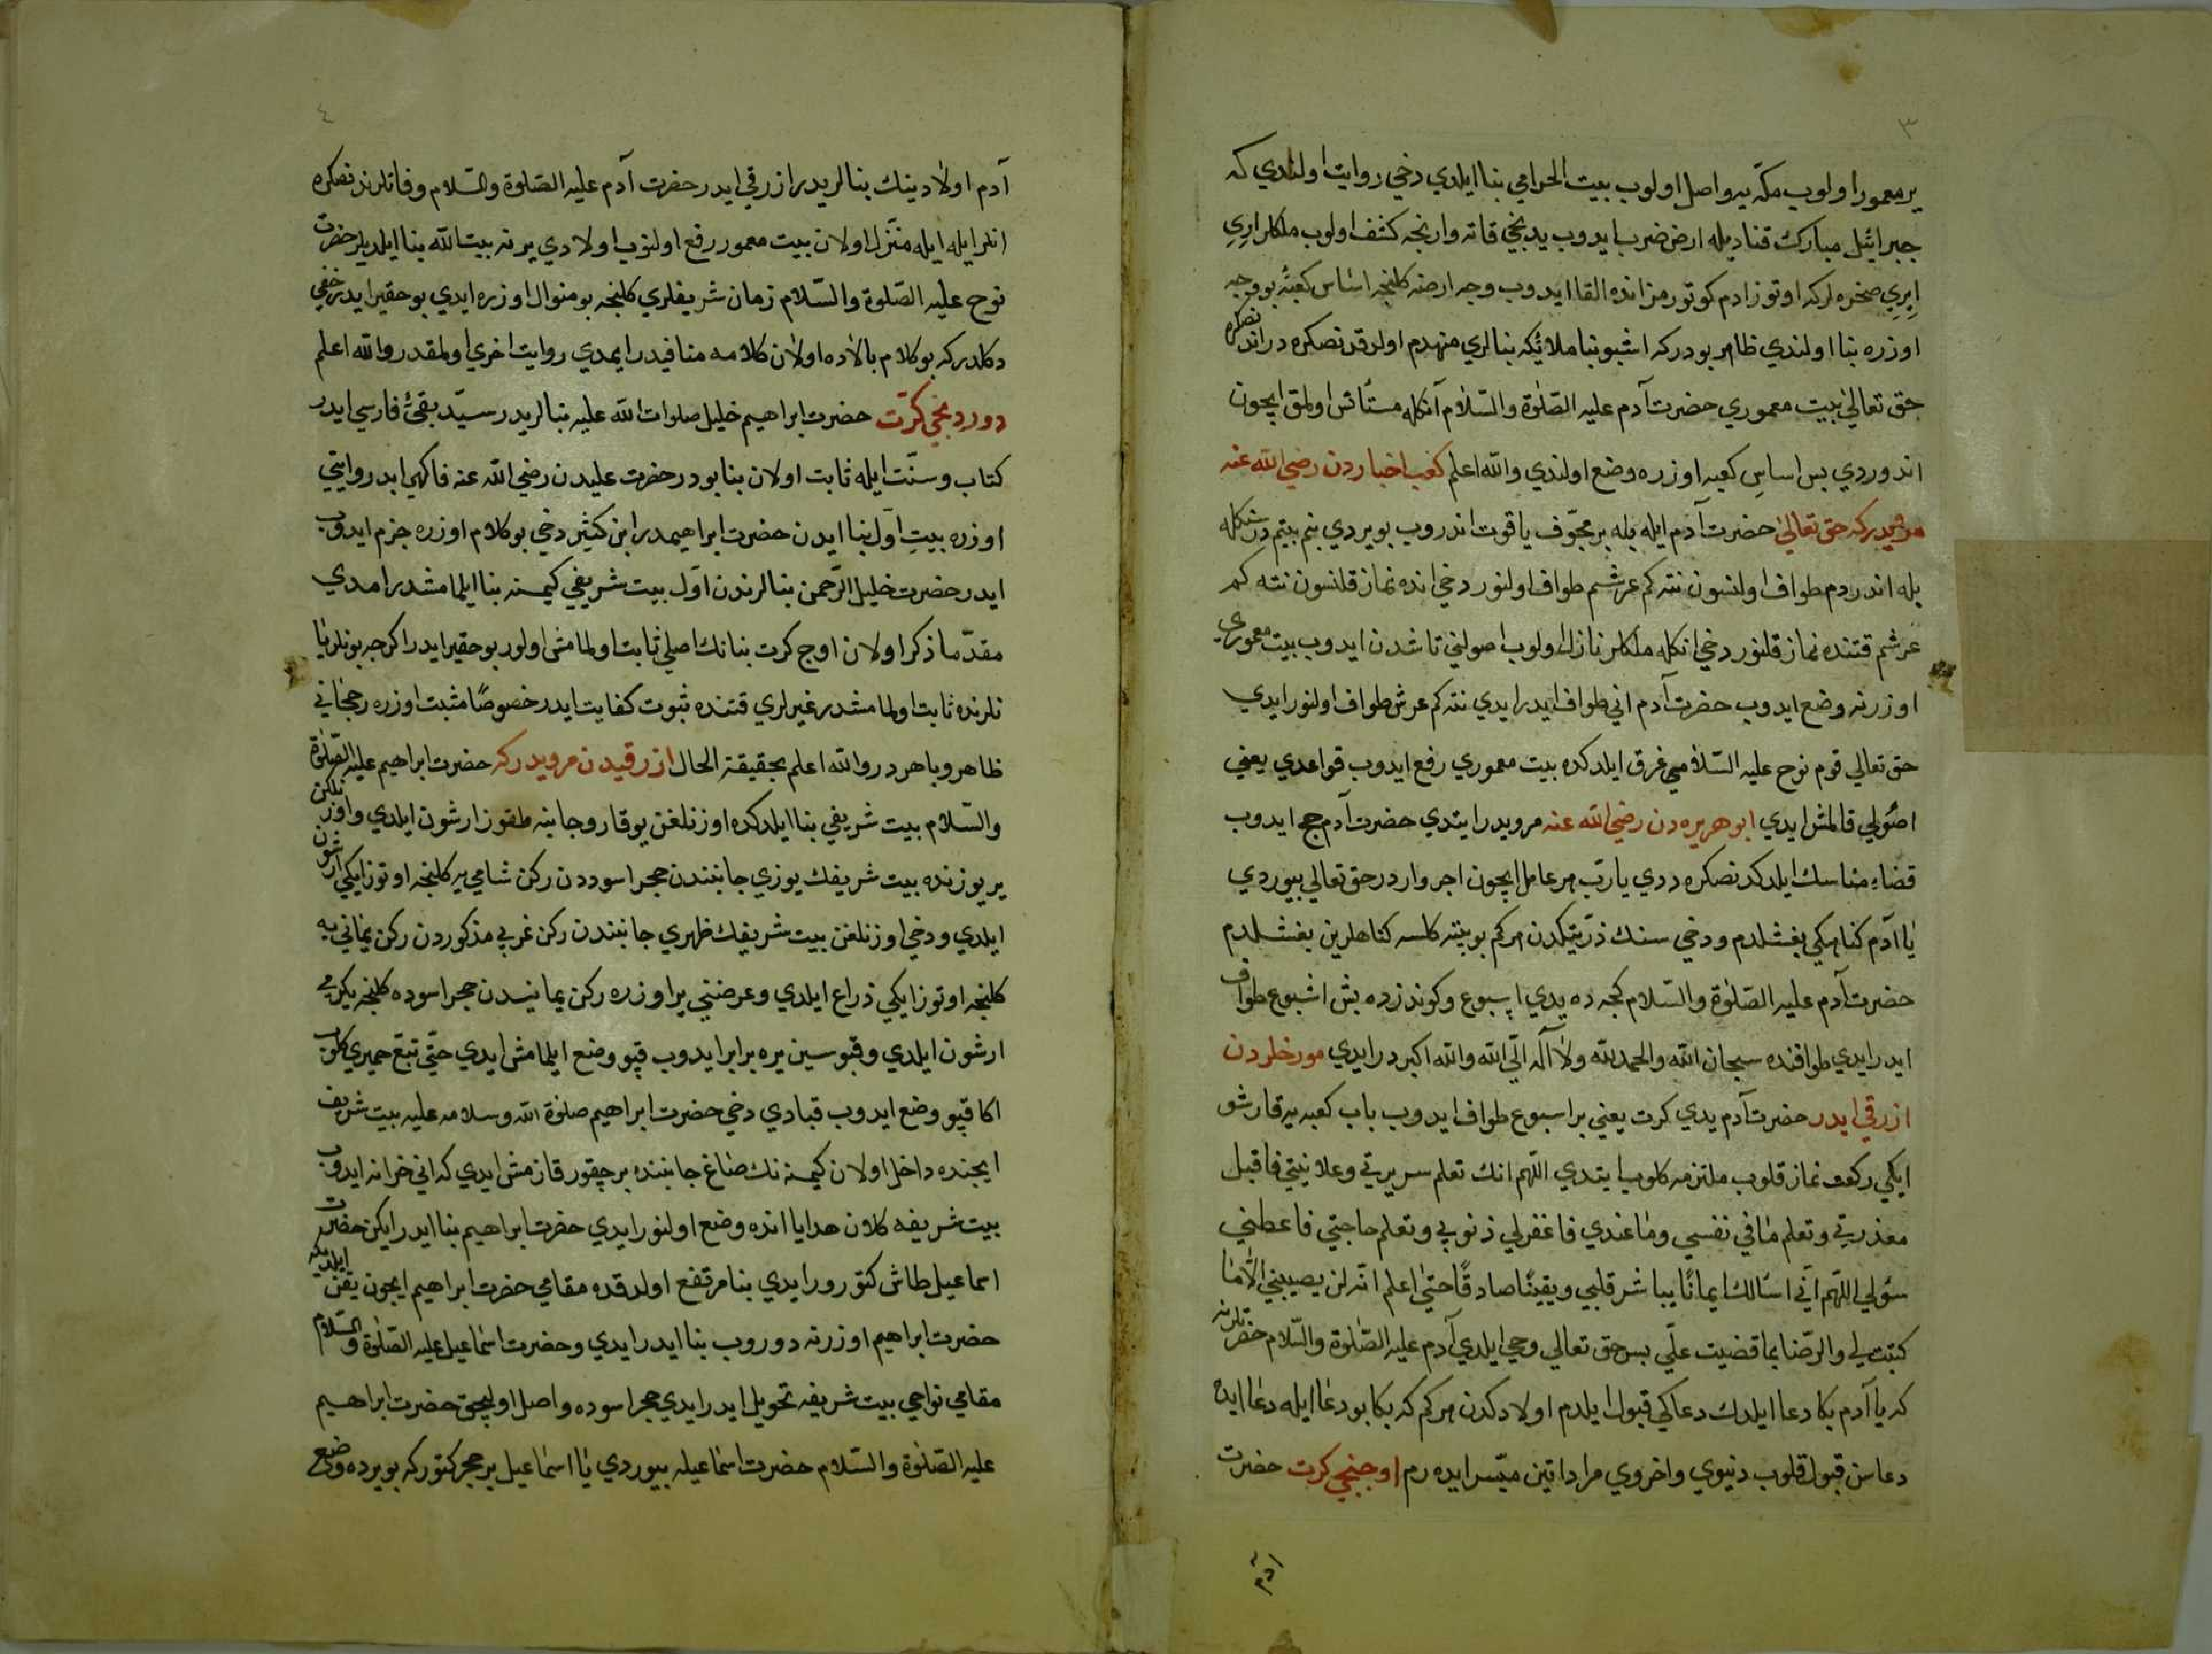 ٣
ير معمور اولوب مكّه يه واصل اولوب بيت الحرامي بنا ايلدي دخي روايت اولندي كه
جبرائيل مبارك قناديله ارض ضرب ايدوب يدنجي قاته وارنجه كشف اولوب ملكلر ايري
ايري صخره لر كه اوتوز ادم كوتورمز انده القا ايدوب وجه ارضه كلنجه اساس كعبه بو وجه
اوزره بنا اولندي ظاهر بودر كه اشبو بنا ملائكه بنالري منهدم اولدقدنصكره در اندنصكره
حق تعالى بيت معموري حضرت آدم عليه الصّلوة والسّلام آنكله مستأنس اولمق ايچون
اندوردي پس اساس كعبه اوزره وضع اولندي والله اعلم كعب احباردن رضي الله عنه
مرويدر كه حق تعالى حضرت آدم ايله بيله بر مجوّف ياقوت اندروب بويردي بنم بيتمدر سنكله
بيله اندردم طواف اولنسون نته كم عرشم طواف اولنور دخي انده نماز قلنسون نته كم
عرشم قتنده نماز قلنور دخي انكله ملكلر نازل اولوب اصولني تاشدن ايدوب بيت معموري
اوزرنه وضع ايدوب حضرت آدم اني طواف ايدر ايدي نته كم عرش طواف اولنور ايدي
حق تعالي قوم نوح عليه السّلامي غرق ايلدكده بيت معموري رفع ايدوب قواعدي يعني
اصولي قالمش ايدي ابو هريره دن رضي الله عنه مرويدر ايتدي حضرت آدم حج ايدوب
قضاء مناسك ايلدكدنصكره ددي يا ربّ هر عامل ايچون اجر واردر حق تعالي بيوردي
يا آدم كناهكي بغشلدم و دخي سنك ذرّيتكدن هر كم بو بيته كلسه كناهلرين بغشلدم
حضرت آدم عليه الصّلوة والسّلام كجه ده يدي اسبوع وكوندزده بش اسبوع طواف
ايدر ايدي طوافنده سبحان الله والحمد لله ولا آله الّا الله والله اكبر در ايدي مورخلردن
ازرقي ايدر حضرت آدم يدي كرت يعني بر اسبوع طواف ايدوب باب كعبه يه قارشو
ايكي ركعت نماز قلوب ملتزمه كلوب ايتدي اللّهم انك تعلم سريرتي وعلانيتي فاقبل
معذرتي وتعلم ما في نفسي وما عندي فاغفرلي ذنوبي وتعلم حاجتي فاعطني
سؤلي اللهم آني اسالك ايمانًا يباشر قلبي ويقينًا صادقًا حتى اعلم انّه لن يصيبني الّا ما
كتبت لي والرّضا بما قضيت علّي پس حق تعالي وحي ايلدي آدم عليه الصّلوة والسّلام حضرتلرنه
كه يا آدم بكا دعا ايلدك دعاكي قبول ايلدم اولادكدن هر كم كه بكا بو دعا ايله دعا ايده
دعاسن قبول قلوب دنيوي واخروي مراداتين ميسّر ايده رم اوچنجي كرت حضرت
آدم
٤
آدم اولادينك بنالريدر ازرقي ايدر حضرت آدم عليه الصّلوة والسّلام وفاتلرندنصكره
انلر ايله ايله منزل اولان بيت معمور رفع اولنوب اولادي يرنه بيت الله بنا ايلديلر حضرت
نوح عليه الصّلوة والسّلام زمان شريفلري كلنجه بو منوال اوزره ايدي بو حقير ايدر خفي
دكلدر كه بو كلام بالاده اولان كلامه منافيدر ايمدي روايت اخري اولمقدر والله اعلم
دوردنجي كرّت حضرت ابراهيم خليل صلوات الله عليه بنالريدر سيّد تقيّ فارسي ايدر
كتاب و سنّت ايله ثابت اولان بنا بودر حضرت عليدن رضي الله عنه فاكهي ايدر روايتي
اوزره بيت اوّل بنا ايدن حضرت ابراهيمدر ابن كثير دخي بو كلام اوزره جزم ايدوب
ايدر حضرت خليل الرّحمن بنالرندن اوّل بيت شريفي كيمسنه بنا ايلمامشدر امدي
مقدّما ذكر اولان اوچ كرت بنانك اصلي ثابت اولمامش اولور بو حقير ايدر اكرچه بونلر يا
نلرنده ثابت اولمامشدر غيرلري قتنده ثبوت كفايت ايدر خصوصًا مثبت اوزره رجحاني
ظاهر وباهردر والله اعلم بحقيقة الحال ازرقيدن مرويدر كه حضرت ابراهيم عليه الصّلوة
والسّلام بيت شريفي بنا ايلدكده اوزنلغن يوقارو جانبنه طقوز ارشون ايلدي و اوزنلكن
ير يوزنده بيت شريفك يوزي جانبندن حجر اسوددن ركن شامي يه كلنجه اوتوز ايكي ارشون
ايلدي و دخي اوزنلغن بيت شريفك ظهري جانبندن ركن غربي مذكوردن ركن يماني يه
كلنجه اوتوز ايكي ذراع ايلدي و عرضنني ير اوزره ركن يمانيدن حجر اسوده كلنجه يكرمي
ارشون ايلدي و قپوسين يره برابر ايدوب قپو وضع ايلمامش ايدي حتّي تبّع حميري كلوب
اكا قپو وضع ايدوب قپادي دخي حضرت ابراهيم صلوة الله وسلامه عليه بيت شريف
ايچنده داخل اولان كيمسنه نك صاغ جانبنده بر چقور قازمش ايدي كه اني خزانه ايدوب
بيت شريفه كلان هدايا انده وضع اولنور ايدي حضرت ابراهيم بنا ايدر ايكن حضرت
اسماعيل طاش كتورور ايدي بنا مرتفع اولدقده مقامي حضرت ابراهيم ايچون يقن ايلديكه
حضرت ابراهيم اوزرنه دوروب بنا ايدر ايدي و حضرت اسماعيل عليه الصّلوة والسّلام
مقامي نواحي بيت شريفه تحويل ايدر ايدي حجر اسوده واصل اوليجق حضرت ابراهيم
عليه الصّلوة والسّلام حضرت اسماعيله بيوردي يا اسماعيل بر حجر كتور كه بو يرده وضع